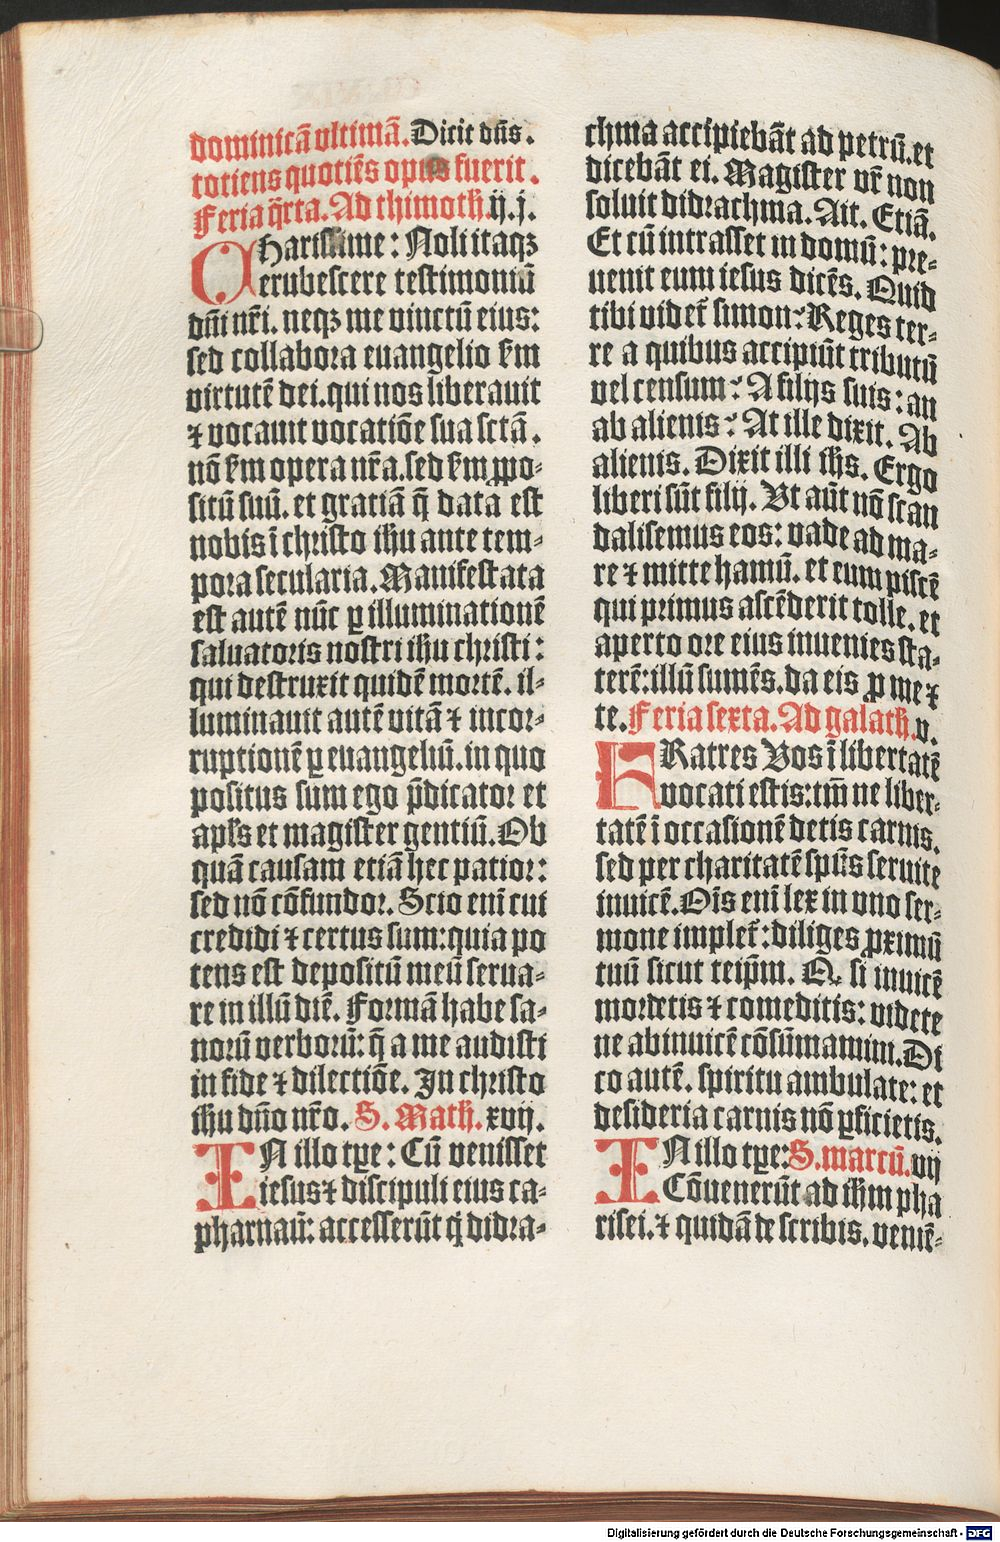 dominicā vltimā. Dicit dn̄s.
totiens quotiēs opus fuerit.
Feria q̄rta. Ad thimoth̄. ij. j.
CHarissime: Noli itaqꝫ
erubescere testimoniū
dn̄i nr̄i. neqꝫ me vinctū eius:
sed collabora euangelio ẜm
virtutē dei. qui nos liberauit
⁊ vocauit vocatiōe sua sctā.
nō ẜm opera nr̄a. sed ẜm ꝓpo⸗
sitū suū. et gratiā q̄ data est
nobis ī christo ih̄u ante tem⸗
pora secularia. Manifestata
est autē nūc ꝑ illuminationē
saluatoris nostri ih̄u christi:
qui destruxit quidē mortē. il⸗
luminauit autē vitā ⁊ incor⸗
ruptionē ꝑ euangeliū. in quo
positus sum ego p̄dicator et
apl̄s et magister gentiū. Ob
quā causam etiā hec patior:
sed nō cōfundor. Scio enī cui
credidi ⁊ certus sum: quia po
tens est depositū meū serua⸗
re in illū diē. Formā habe sa⸗
norū verborū: q̄ a me audisti
in fide ⁊ dilectiōe. In christo
ih̄u dn̄o nr̄o. S. Math̄. xvij.
IN illo tꝑe: Cū venisset
iesus ⁊ discipuli eius ca⸗
pharnaū: accesserūt q̇ didra⸗
chma accipiebāt ad petrū. et
dicebāt ei. Magister vr̄ non
soluit didrachma. Ait. Etiā.
Et cū intrasset in domū: pre⸗
uenit eum iesus dicēs. Quid
tibi videt̄ simon? Reges ter⸗
re a quibus accipiūt tributū
vel censum? A filijs suis: an
ab alienis? At ille dixit. Ab
alienis. Dixit illi ih̄s. Ergo
liberi sūt filij. Vt aūt nō scan
dalisemus eos: vade ad ma⸗
re ⁊ mitte hamū. et eum piscē
qui primus ascēderit tolle. et
aperto ore eius inuenies sta⸗
terē: illū sumēs. da eis ꝓ me ⁊
te. Feria sexta. Ad galath̄. v.
FRatres Vos ī libertatē
vocati estis: tm̄ ne liber⸗
tatē ī occasionē detis carnis.
sed per charitatē spūs seruite
inuicē. Oīs enī lex in vno ser⸗
mone implet̄: diliges ꝓximū
tuū sicut teip̄m. Q. si inuicē
mordetis ⁊ comeditis: videte
ne abinuicē cōsūmamini. Di
co autē. spiritu ambulate: et
desideria carnis nō ꝑficietis.
IN illo tꝑe: S. marcū. vij
Cōuenerūt ad ih̄m pha
risei. ⁊ quidā de scribis. veniē⸗
Digitalisierung gefördert durch die Deutsche Forschungsgemeinschaft - DFG